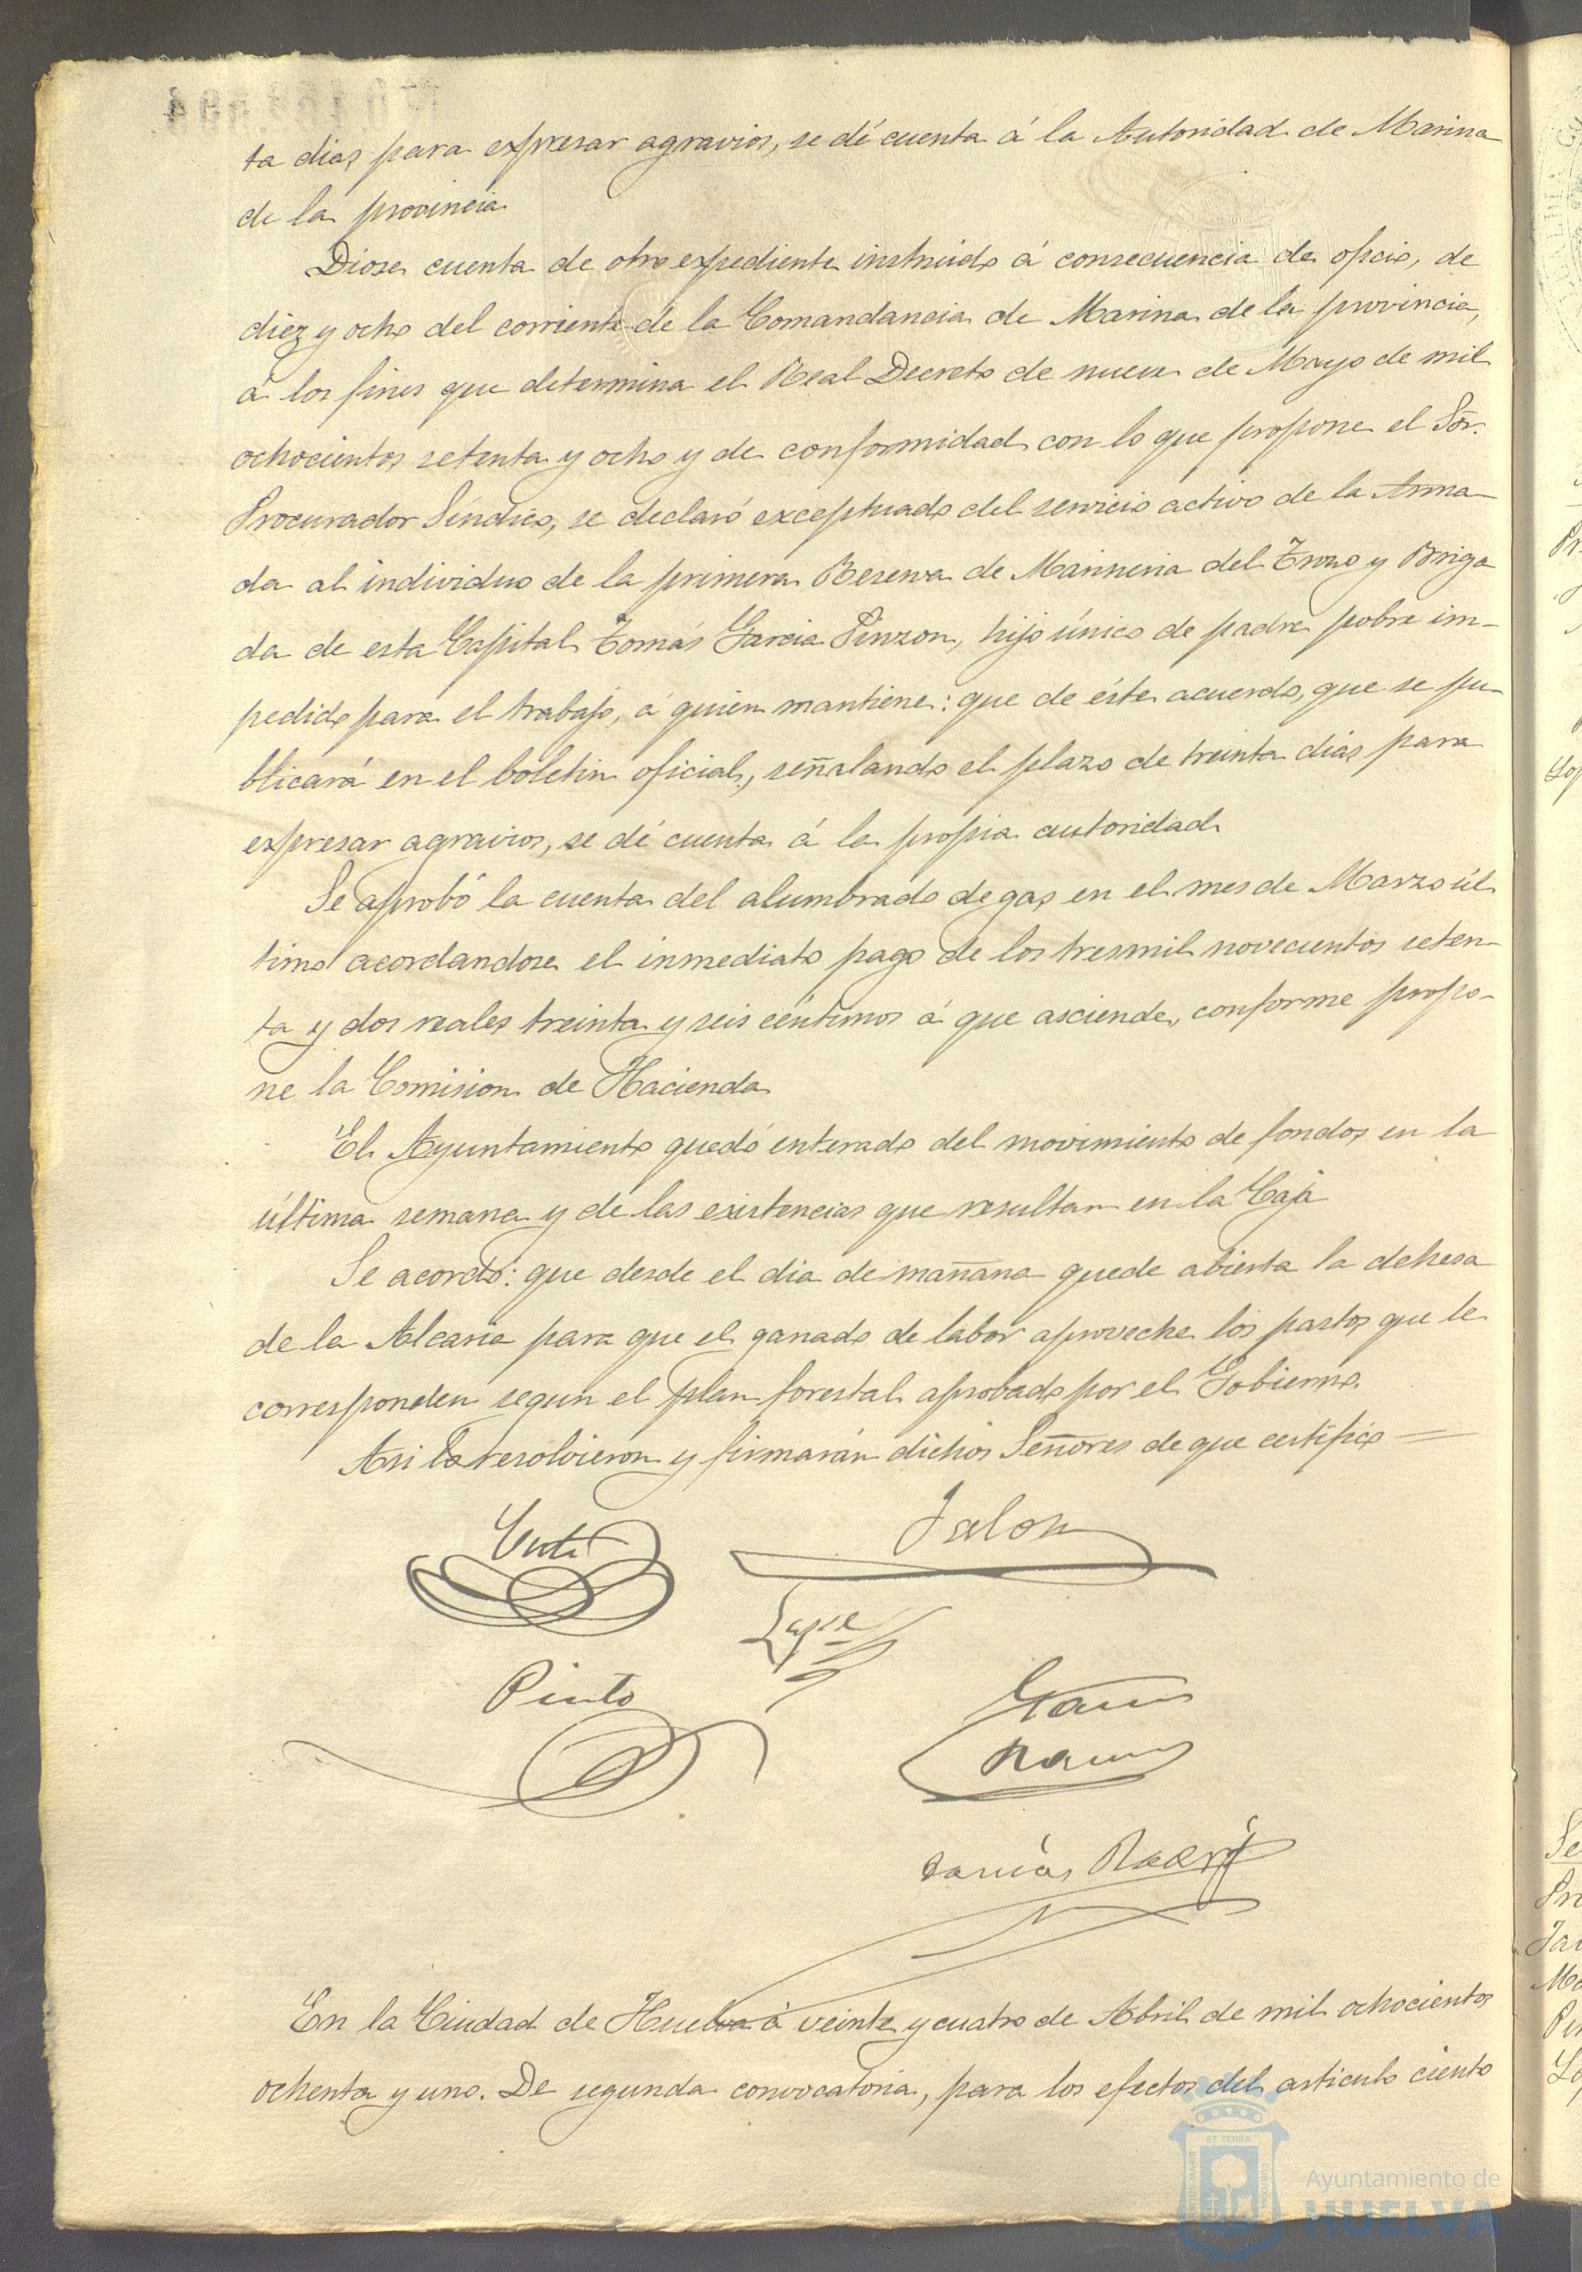 ta dias para expresar agravios, se dé cuenta á la Autoridad de Marina
de la provincia
Diose cuenta de otro expediente instruido á consecuencia de oficio, de
diez y ocho del corriente de la Comandancia de Marina de la provincia,
á los fines que determina el Real Decreto de nueve de Mayo de mil
ochocientos setenta y ocho y de conformidad con lo que propone el Sõr.
Procurador Síndico, se declaró exceptuado del servicio activo de la Arma-
da al individuo de la primera Reserva de Marineria del Trozo y Briga
da de esta Capital Tomás Garcia Pinzon, hijo único de padre pobre im-
pedido para el trabajo, á quien mantiene: que de éste acuerdo, que se pu-
blicará en el boletin oficial, señalando el plazo de treinta dias para
expresar agravios, se dé cuenta á la propia autoridad
Se aprobó la cuenta del alumbrado de gas en el mes de Marzo úl
timo acordandose el inmediato pago de los tresmil novecientos seten-
ta y dos reales treinta y seis céntimos á que asciende, conforme propo-
ne la Comision de Hacienda
El Ayuntamiento quedó enterado del movimiento de fondos en la
última semana y de las existencias que resultan en la Caja
Se acordó: que desde el dia de mañana quede abierta la dehesa
de la Alcaria para que el ganado de labor aproveche los pastos que le
corresponden segun el plan forestal aprobado por el Gobierno.
Asi lo resolvieron y firmarán dichos Señores de que certifico =
Jalon
Pinto
Garcia
Ramos
En la Ciudad de Huelva á veinte y cuatro de Abril de mil ochocientos
ochenta y uno. De segunda convocatoria, para los efectos del articulo ciento
Ayuntamiento de
HUELVA